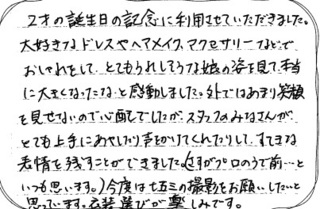 2才の誕生日の記念に利用させていただきました。
大好きなドレスやヘアメイク、アクセサリーなどで
おしゃれをして、とてもうれしそうな娘の姿を見て、本当
に大きくなったなぁと感動しました。外ではあまり笑顔
を見せないので心配でしたが、スタッフのみなさんが
とても上手にあやしたり声をかけてくれたりして、すてきな
表情を残すことができました。(さすがプロのうで前…と
いつも思います。)今度は七五三の撮影をお願いしたいと
思っています。衣装選びが楽しみです。